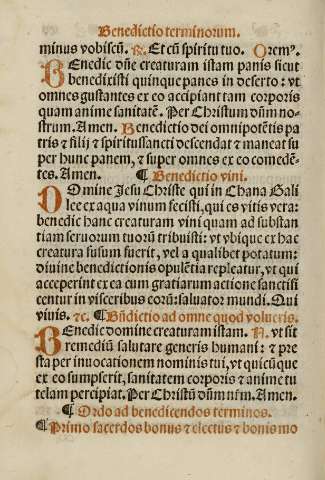 Benedictio terminorum.
minus vobiscũ. ℟. Et cũ spiritu tuo. Oremꝰ.
BEnedic dñe creaturam istam panis sicut
benedixisti quinque panes in deserto: vt
omnes gustantes ex eo accipiant tam corporis
quam anime sanitatẽ. Per Christum dñm no-
strum. Amen. Benedictio dei omnipotẽtis pa
tris ⁊ filij ⁊ spiritussancti descendat ⁊ maneat su
per hunc panem, ⁊ super omnes ex eo comedẽ-
tes. Amen. ¶ Benedictio vini.
DOmine Jesu Christe qui in Chana Gali
lee ex aqua vinum fecisti, qui es vitis vera:
benedic hanc creaturam vini quam ad substan
tiam seruorum tuorũ tribuisti: vt vbique ex hac
creatura fusum fuerit, vel a qualibet potatum:
diuine benedictionis opulẽtia repleatur, vt qui
acceperint ex ea cum gratiarum actione sanctifi
centur in visceribus eorũ: saluator mundi. Qui
viuis. ⁊c. ¶ Bñdictio ad omne quod volueris.
BEnedic domine creaturam istam. N. vt sit
remediũ salutare generis humani: ⁊ pre
sta per inuocationem nominis tui, vt quicũque
ex eo sumpserit, sanitatem corporis ⁊ anime tu
telam percipiat. Per Christũ dñm nr̃m. Amen.
¶ Ordo ad benedicendos terminos.
¶ Primo sacerdos bonus ⁊ electus ⁊ bonis mo